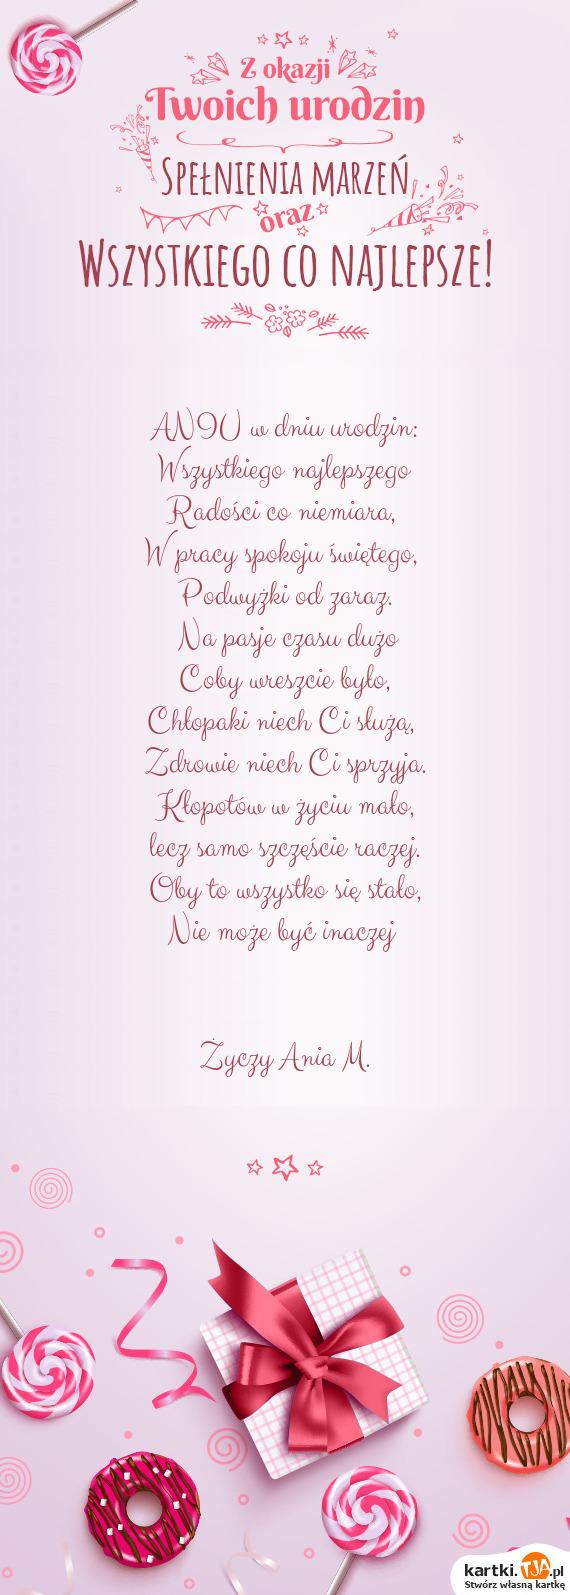 Z okazji
Twoich urodzin
Spełnienia marzeń
oraz
Wszystkiego co najlepsze!
ANIU w dniu urodzin:
Wszystkiego najlepszego
Radości co niemiara,
W pracy spokoju świętego,
Podwyżki od zaraz.
Na pasje czasu dużo
Coby wreszcie było,
Chłopaki niech Ci służą,
Zdrowie niech Ci sprzyja.
Kłopotów w życiu mało,
lecz samo szczęście raczej.
Oby to wszystko się stało,
Nie może być inaczej
Życzy Ania M.
kartki.TJA.pl
Stwórz własną kartkę